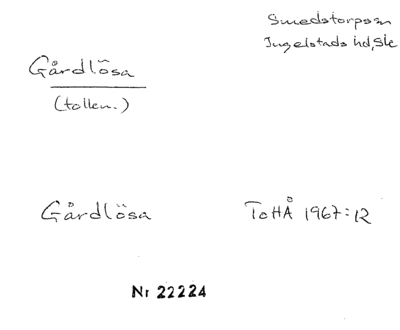 Smedstorps sn
Ingelstads hd, Sk
Gårdlösa
(tollen.)
Gårdlösa
ToHÅ 1967:12
Nr 22224